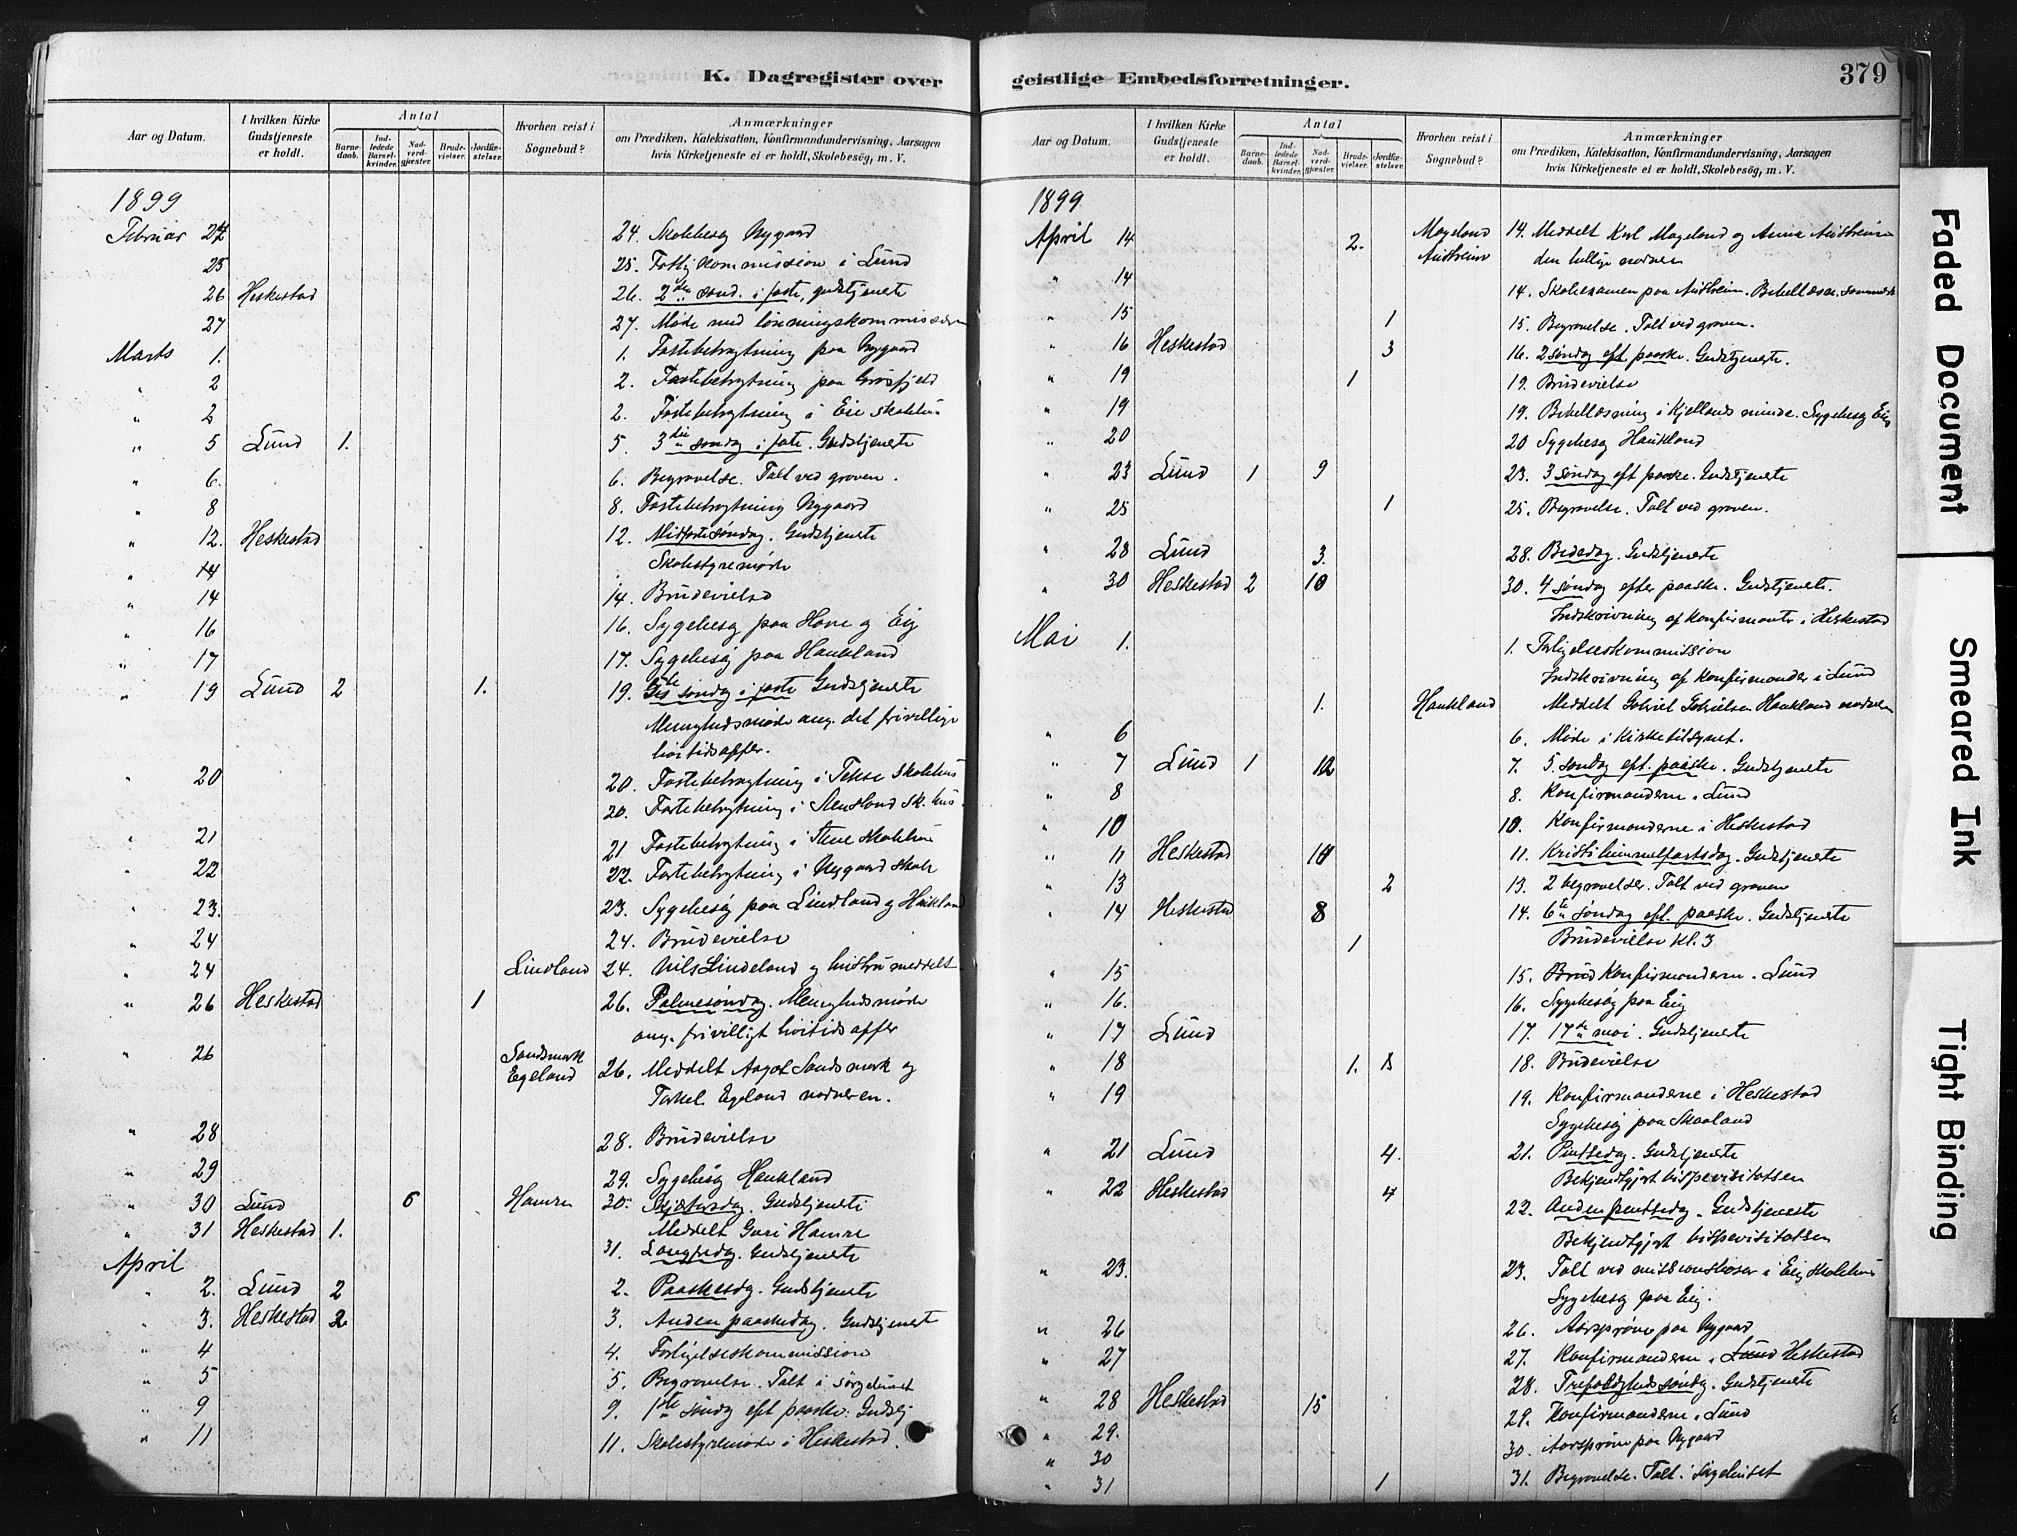 K. Dagregister over
Aar og Datum.
I hvilken Kirke Gudstjeneste er holdt.
Antal
Barnedaab.
Indledede Barselkvinder.
Nadvergjæster.
Brudevielser.
Jordfæstelser.
Hvorhen reist i Sognebud?
Anmærkninger
om Prædiken, Katekisation, Konfirmandundervisning, Aarsagen
hvis Kirketjeneste ei er holdt, Skolebesög, m. V.
1899
Februar 24 24. Skolebesøg Nygaard
25 25. Forligskommission i Lund
26 Heskestad 26. 2den sønd. i faste, gudstjeneste
27 27. Møde med
Marts 1. 1. Fastebetragtning paa Nygaard
" 2 2. Fastebetragtning paa Grøsfjeld
" 2 2. Fastebetragtning i Eie skolehus
" 5 Lund 1. 5. 3die søndag i faste. Gudstjeneste
" 6. 6. Begravelse. Talt ved graven.
" 8 8. Fastebetragtning Nygaard
" 12. Heskestad 12. Midfastesøndag. Gudstjeneste
" 14 Skolestyremøde
" 14 14. Brudevielse
" 16 16. Sygebesøg paa Hove og Eig
" 17 17. Sygebesøg paa Haukland
" 19 Lund 2 1. 19. søndag i faste Gudstjeneste
Menighedsmøde ang. det frivillige
høitidsoffer.
" 20 20. Fastebetragtning i Tekse skolehus
20. Fastebetragtning i Stensland sk. hus
" 21 21 Fastebetragtning i Stene skolehus
" 22 22. Fastebetragtning i Nygaard skole
" 23. 23. Sygebesøg paa Lindland og Haukland
" 24 24. Brudevielse
" 24 Lindland 24. Nils Lindeland og hustru meddelt
" 26 Heskestad 1 26. Palmesøndag. Menighedsmøde
ang. frivilligt høitidsoffer
" 26 Sandsmark Egeland 26. Meddelt Aagot Sandsmark og
Torkel Egeland nadveren.
" 28 28. Brudevielse
" 29 29. Sygebesøg Haukland
" 30 Lund 6 Hamre 30. Skjærtorsdag. Gudstjeneste
Meddelt Guri Hamre
" 31 Heskestad 1. 31. Langfredag. Gudstjeneste
April
" 2. Lund 2 2. Paaskedag. Gudstjeneste
" 3. Heskestad 2 3. Anden paaskedag. Gudstjeneste
" 4 4. Forligelseskommission
" 5 5. Begravelse. Talt i sørgehuset
" 9 9. 1ste søndag eft paaske. Gudstj
" 11 11. Skolestyremøde i Heskestad.
geistlige Embedsforretninger.
379
Aar og Datum.
I hvilken Kirke Gudstjeneste er holdt.
Antal
Barnedaab.
Indledede Barselkvinder.
Nadvergjæster.
Brudevielser.
Jordfæstelser.
Hvorhen reist i Sognebud?
Anmærkninger
om Prædiken, Katekisation, Konfirmandundervisning, Aarsagen
hvis Kirketjeneste ei er holdt, Skolebesög, m. V.
1899
April 14 2. Mageland Austreim 14. Meddelt Karl Mageland og Anna Austreim
den hellige nadver
" 14 14. Skoleexamen paa Austreim. Bibellæsn. sammesteds
" 15 1 15. Begravelse. Talt ved graven.
" 16 Heskestad 3 16. 2 søndag eft paaske. Gudstjeneste.
" 19 1 19. Brudevielse
" 19 19. Bibellæsning i Kjellands minde. Sygebesøg Eig
" 20 20 Sygebesøg Haukland
" 23 Lund 1 9 23. 3 søndag eft paaske. Gudstjeneste
" 25 1 25. Begravelse. Talt ved graven.
" 28 Lund 3. 28. Bededag. Gudstjeneste
" 30 Heskestad 2 10 30. 4 søndag efter paaske. Gudstjeneste.
Indskrivning af konfirmanter i Heskestad
Mai 1. 1. Forligelseskommission
Indskrivning af konfirmander i Lund
1. Haukland Meddelt Gabriel Gabrielsen Haukland nadveren
" 6 6. Møde i Kirketilsynet.
" 7 Lund 1 12 7. 5. søndag eft. paaske. Gudstjeneste
" 8 8. Konfirmanderne. Lund
" 10 10. Konfirmanderne i Heskestad
" 11 Heskestad 11. Kristi himmelfartsdag. Gudstjeneste
" 13 2 13. 2 begravelser. Talt ved graven
" 14 Heskestad 8 14. 6te søndag eft. paaske. Gudstjeneste
1 Brudevielse kl. 3
" 15 15. Brud Konfirmandern. Lund
" 16. 16. Sygebesøg paa Eig
" 17 Lund 17. 17de mai. Gudstjeneste
" 18 1. 18. Brudevielse
" 19 19. Konfirmanderne i Heskestad
Sygebesøg paa Skaaland
" 21 Lund 4. 21. Pintsedag. Gudstjeneste
Bekjendtgjort bispevisitatsen
" 22 Heskestad 4 22. Anden pintsedag. Gudstjeneste
Bekjendtgjort bispevisitatsen
" 23. 23. Talt ved missionsbasar i Eig skolehus
Sygebesøg paa Eig.
" 26 26. Aarsprøve paa Nygaard
" 27 27. Konfirmandern. Lund Heskestad
" 28 Heskestad 15 28. Trefoldighedssøndag. Gudstjeneste
" 29. 29. Konfirmanderne. Lund
" 30 30. Aarsprøve paa Nygaard
" 31 1 31. Begravelse. Talt i sørgehuset
Faded Document
Smeared Ink
Tight Binding